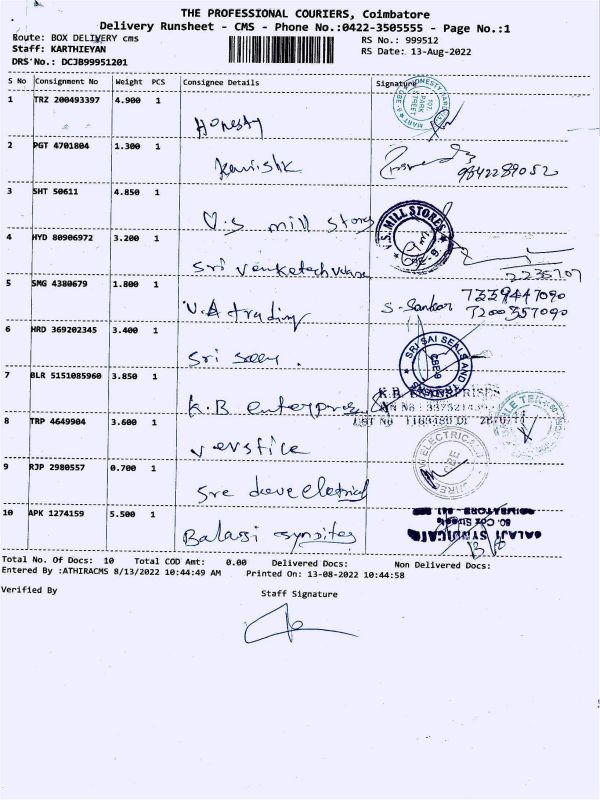 THE PROFESSIONAL COURIERS, Coimbatore
Delivery Runsheet - CMS - Phone No.:0422-3505555 - Page No.:1
Route: BOX DELIVERY cms
RS No.: 999512
Staff: KARTHIEYAN
RS Date: 13-Aug-2022
DRS No.: DCJB99951201
S No Consignment No Weight PCS Consignee Details Signature
1 TRZ 200493397 4.900 1 Honesty
2 PGT 4701804 1.300 1 Kanishk 9842289052
3 SHT 50611 4.850 1 V.S mill stores
V.S. MILL STORES
4 HYD 80906972 3.200 1 Sri
2235707
5 SMG 4380679 1.800 1 V.A trading S-Sankar 7339447090
7200357090
6 HRD 369202345 3.400 1 Sri
SRI SAI SEALS AND
CBE-9
7 BLR 5151085960 3.850 1 K.B enterprises
K.B. ENTERPRISES
8 TRP 4649904 3.600 1
9 RJP 2980557 0.700 1 Sre eletrical
ELECTRICAL
10 APK 1274159 5.500 1 Balaji
BALAJI SYNDICATE
Total No. Of Docs: 10 Total COD Amt: 0.00 Delivered Docs: Non Delivered Docs:
Entered By :ATHIRACMS 8/13/2022 10:44:49 AM Printed On: 13-08-2022 10:44:58
Verified By
Staff Signature